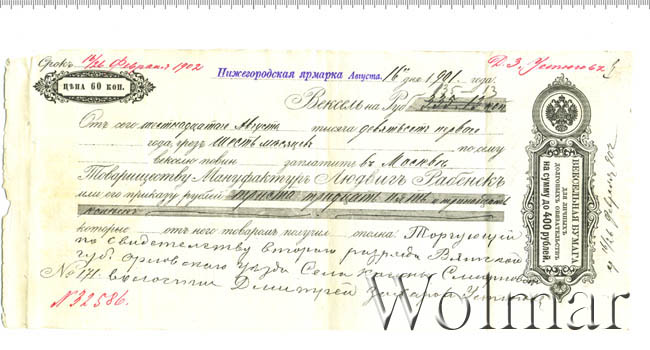 Срокъ 13/26 Февраля 1902
Д. З. Устюговъ
ЦѢНА 60 КОП.
Нижегородская ярмарка Августа 16 дня 1901 года.
335 13
Вексель на Руб 335-13 коп
Отъ сего шестнадцатаго Августа тысяча девятьсотъ перваго
года, чрезъ шесть мѣсяцевъ по сему
векселю повин заплатить въ Москвѣ
Товариществу Мануфактуръ Людвигъ Рабенекъ
или его приказу рублей триста тридцать пять и тринадцать
копѣекъ
которые отъ него товаромъ получил сполна: Торгующій
по свидѣтельству второго разряда Вятской
губ. Орловскаго уѣзда Села
№ 171. волости Дмитрій Захаровъ Устюговъ
№ 32586.
ВЕКСЕЛЬНАЯ БУМАГА
ДЛЯ ЛИЧНЫХЪ
ДОЛГОВЫХЪ ОБЯЗАТЕЛЬСТВЪ
НА СУММУ ДО 400 РУБЛЕЙ.
13/26 Февраля 902
Wolmar